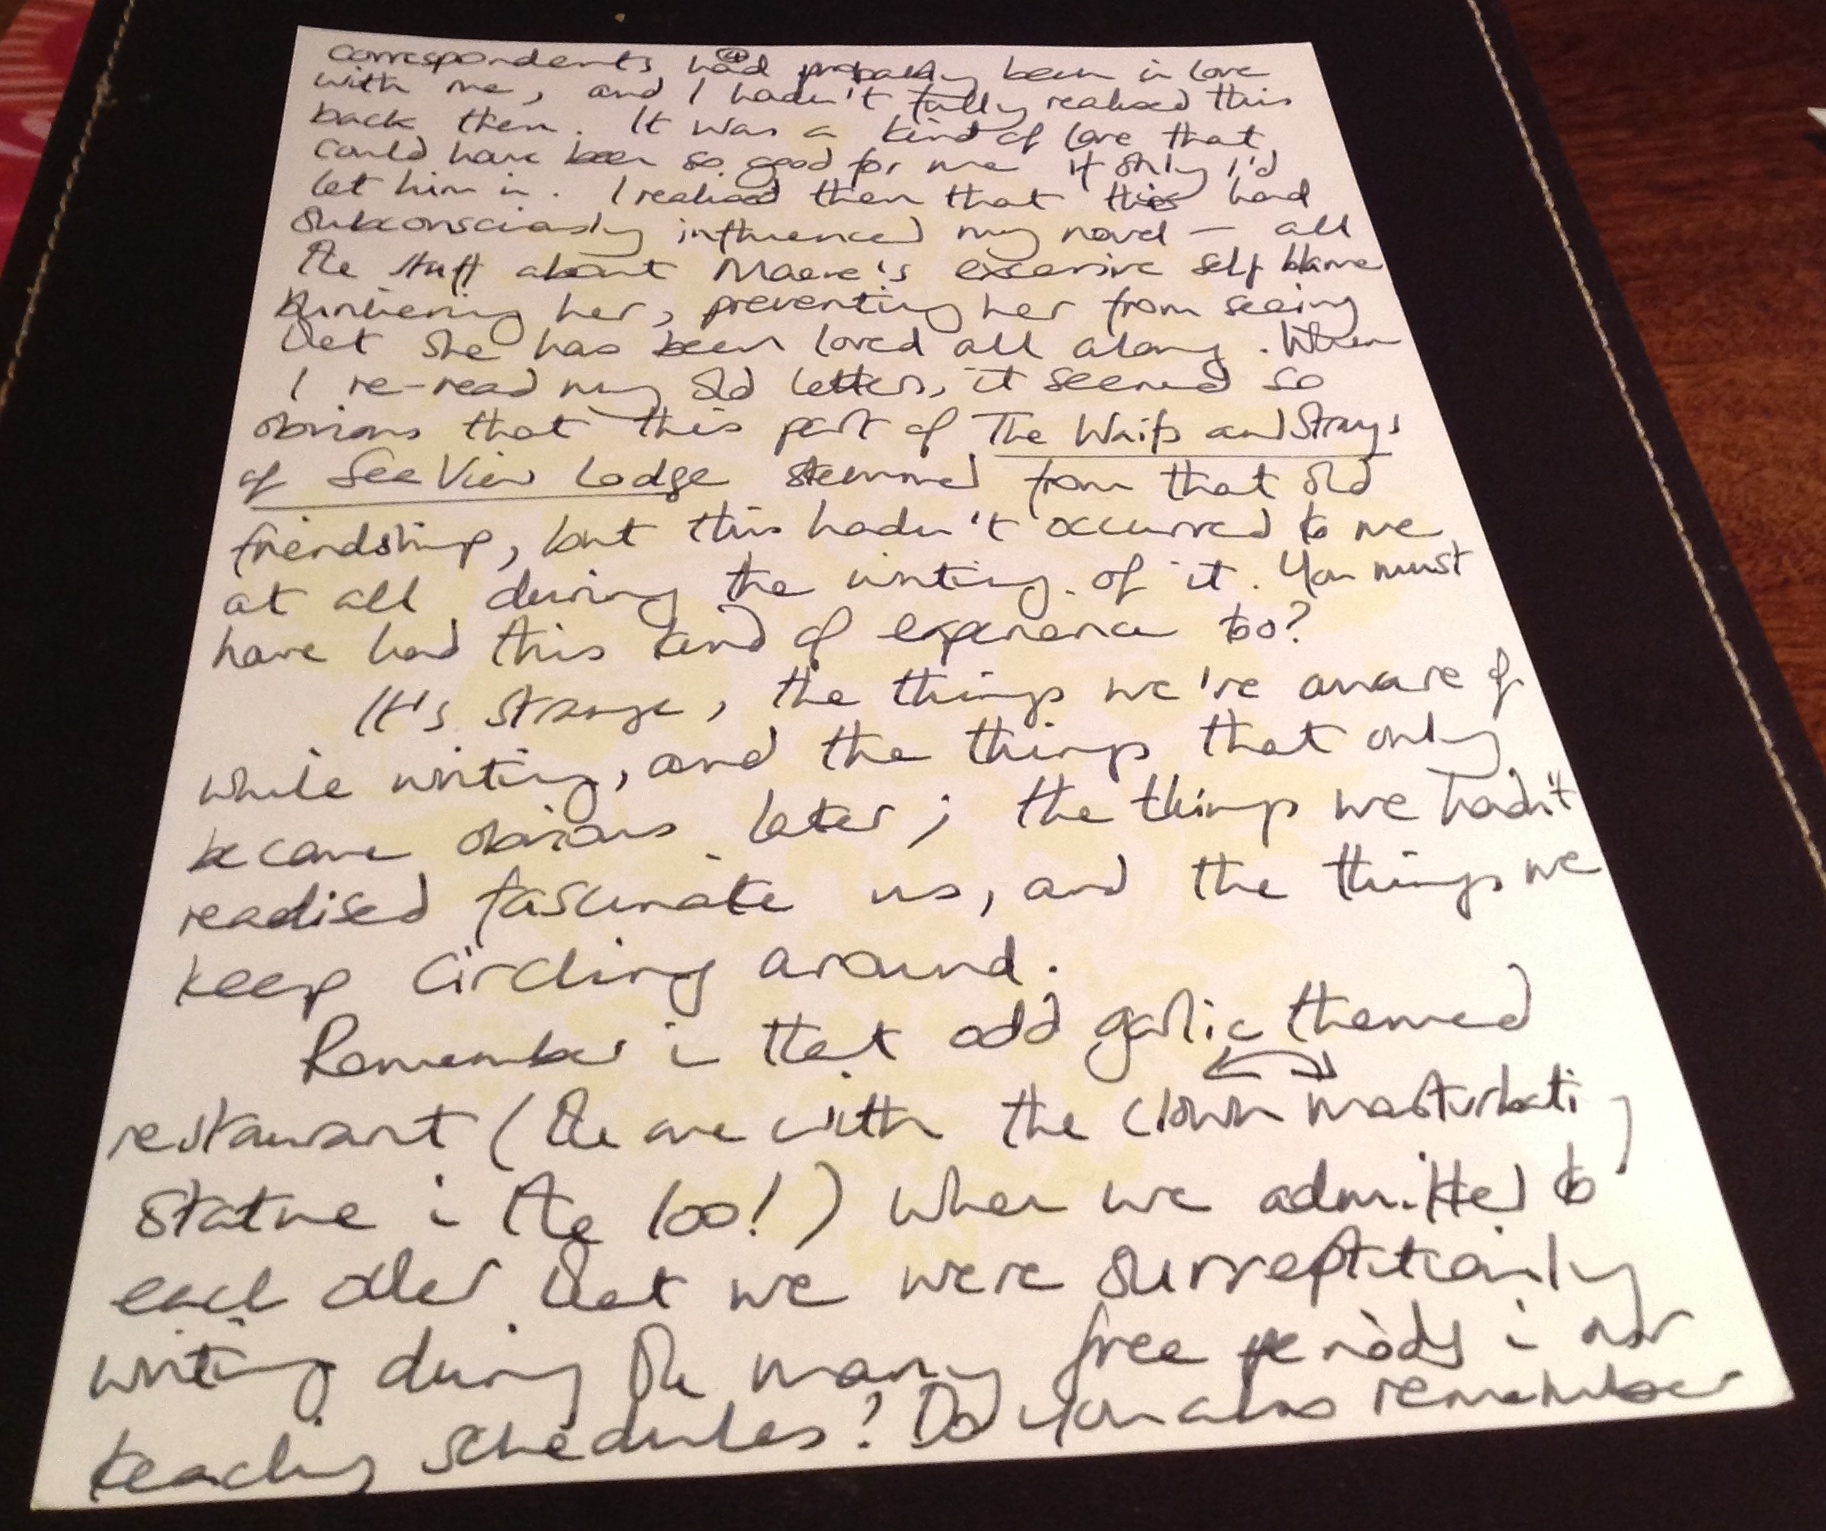 correspondents had probably been in love
with me, and I hadn't fully realised this
back then. It was a kind of love that
could have been so good for me if only I'd
let him in. I realised then that this had
subconsciously influenced my novel — all
the stuff about Maeve's excessive self blame
burdening her, preventing her from seeing
that she has been loved all along. When
I re-read my old letters, it seemed so
obvious that this part of The Waifs and Strays
of Sea View Lodge stemmed from that old
friendship, but this hadn't occurred to me
at all during the writing of it. You must
have had this kind of experience too?
It's strange, the things we're aware of
while writing, and the things that only
become obvious later; the things we hadn't
realised fascinate us, and the things we
keep circling around.
Remember in that odd garlic themed
restaurant (the one with the clown masturbating
statue in the loo!) when we admitted to
each other that we were surreptitiously
writing during the many free periods in our
teaching schedules? Do you also remember